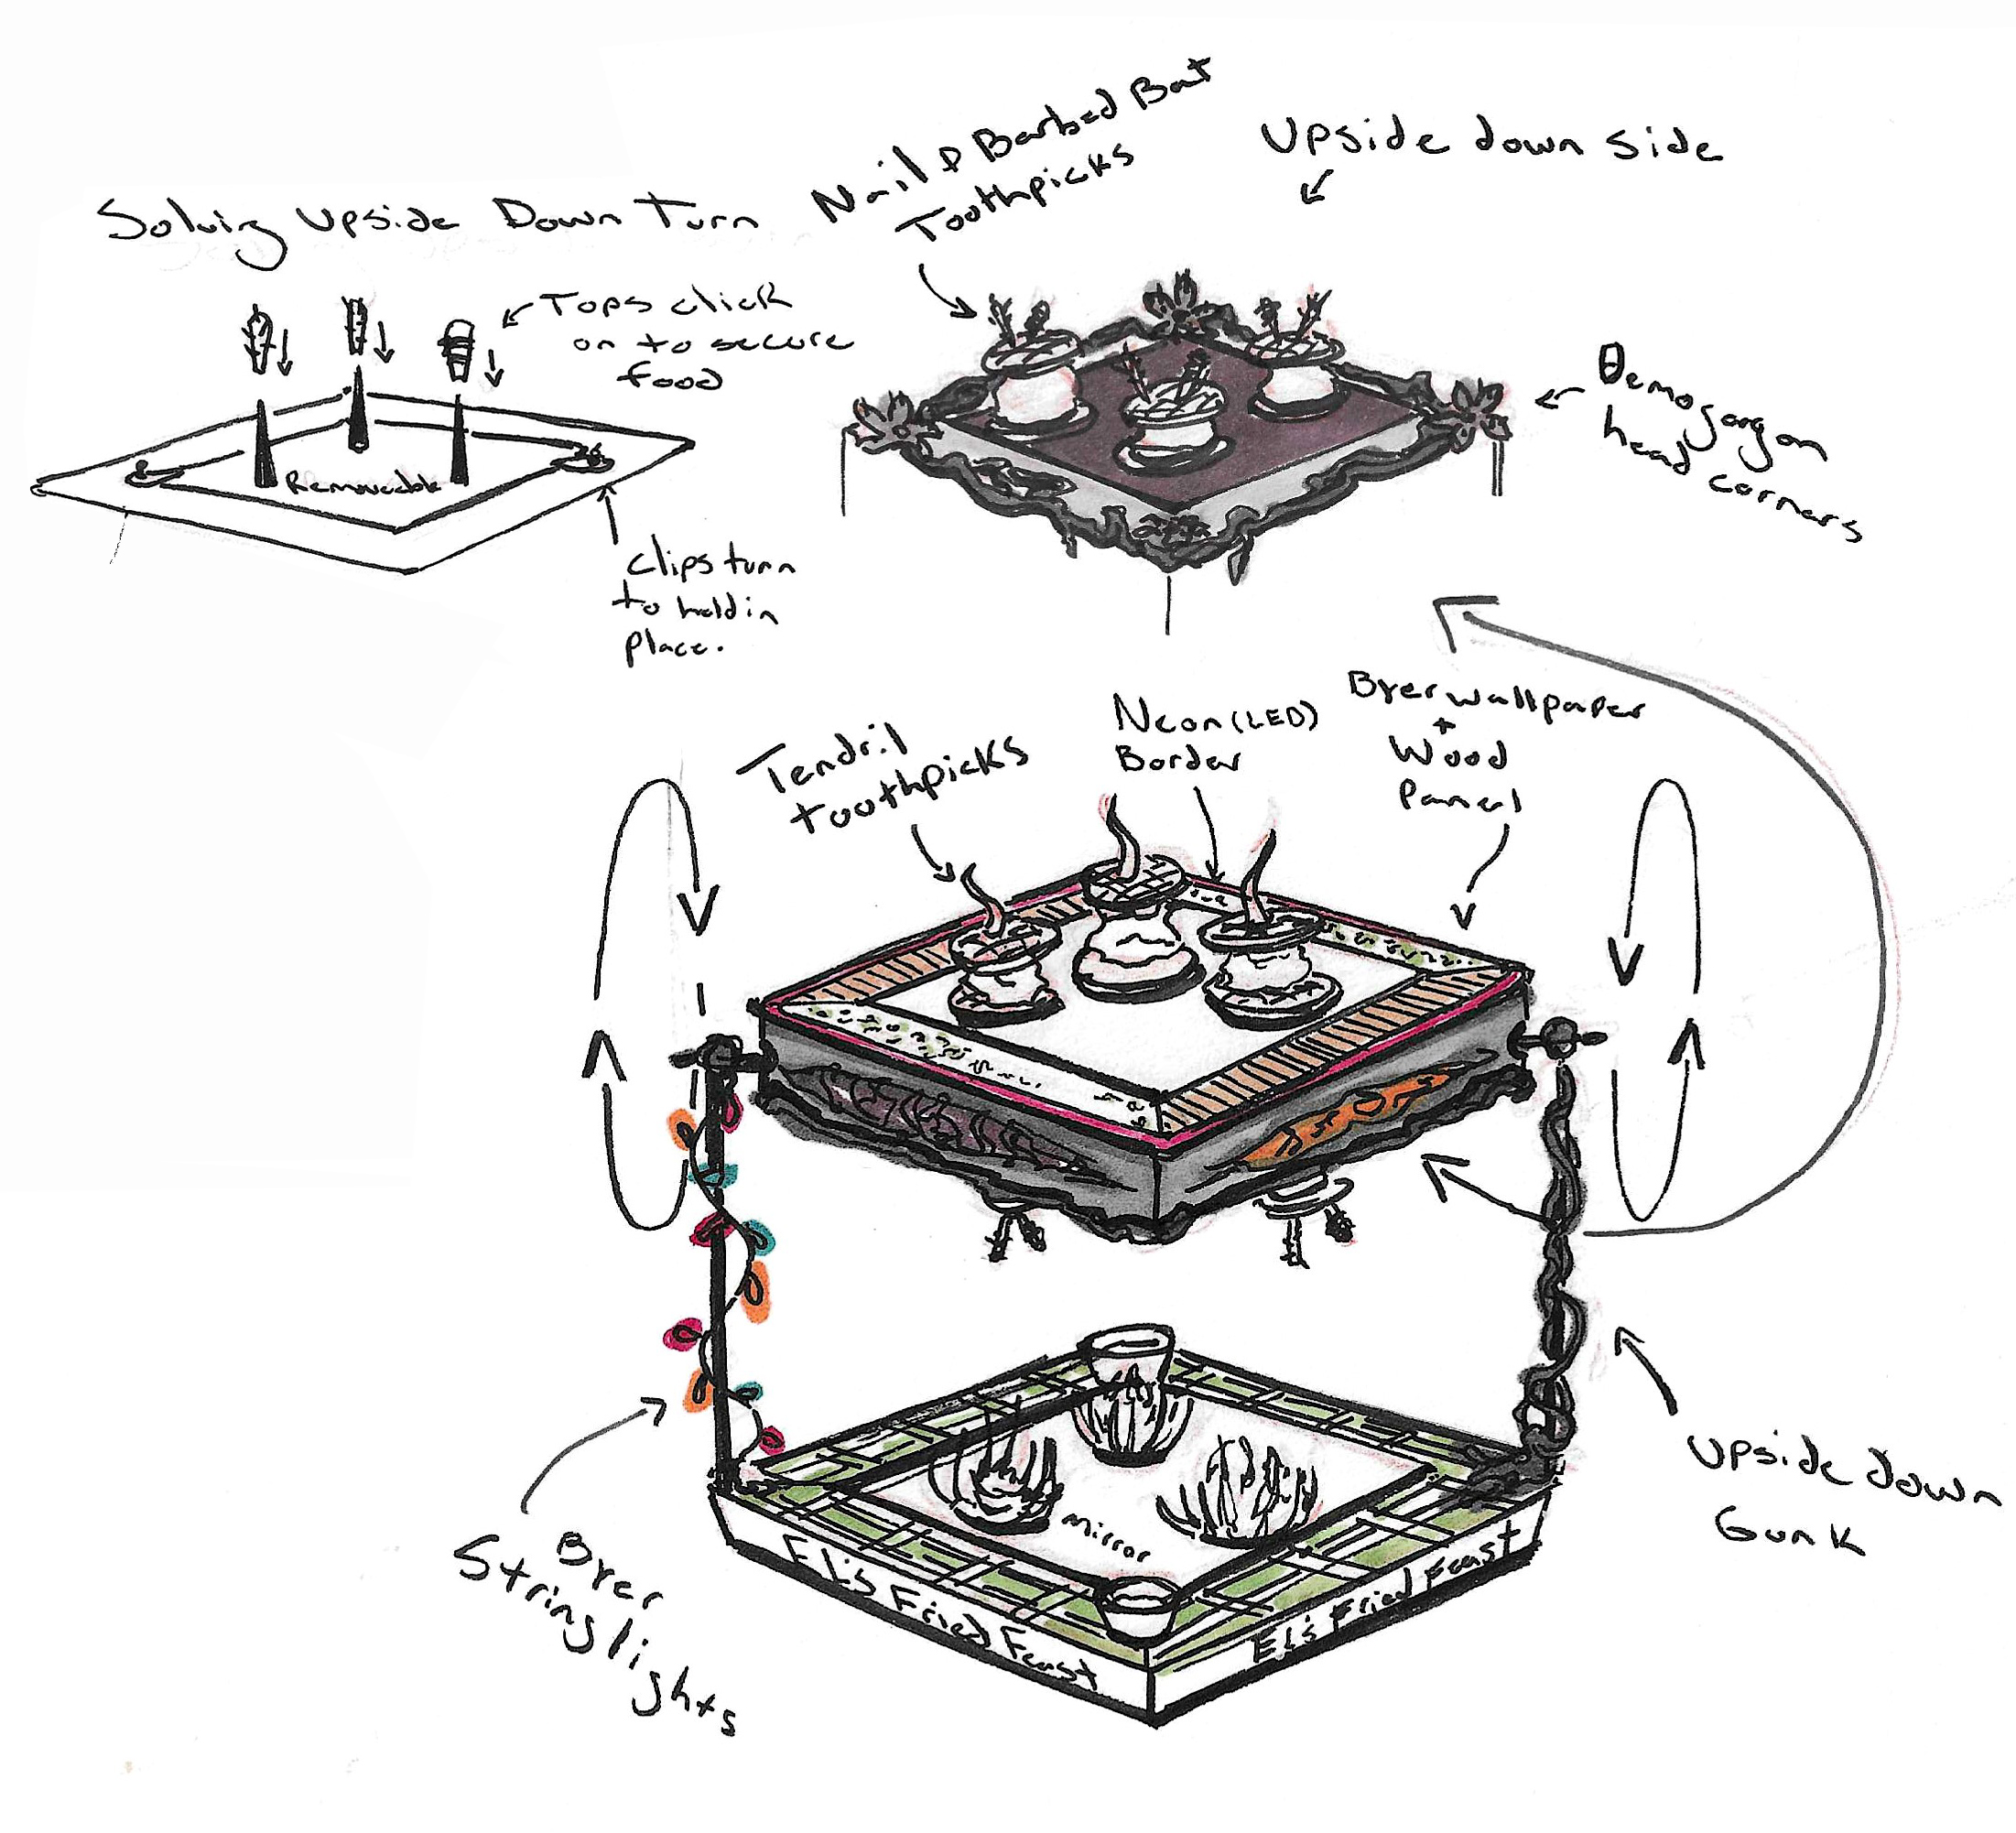 Solving Upside Down Turn
Nail & Barbed Bat
Toothpicks
Upside down side
Tops click
on to secure
food
Removeable
Clips turn
to hold in
place.
Demogorgon
head corners
Tendril
toothpicks
Neon (LED)
Border
Byer wallpaper
+
Wood
Panel
Byer
String lights
Upside down
Gunk
mirror
El's Fried Feast
El's Fried Feast